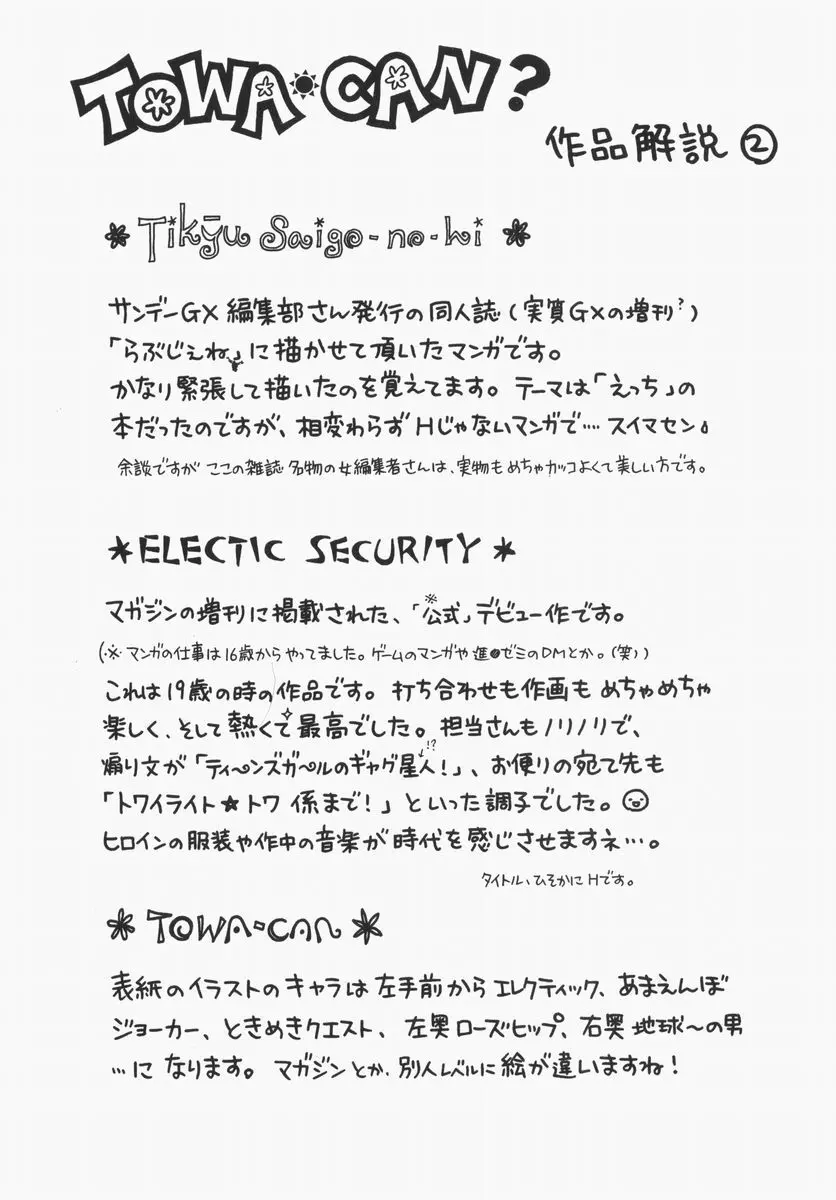 TOWA・CAN?
作品解説②
＊Tikyū Saigo-no-hi＊
サンデーGX編集部さん発行の同人誌（実質GXの増刊?）
「らぶじぇね」に描かせて頂いたマンガです。
かなり緊張して描いたのを覚えてます。テーマは「えっち」の
本だったのですが、相変わらずHじゃないマンガで…スイマセン
余談ですが ここの雑誌名物の女編集者さんは、実物もめちゃカッコよくて美しい方です。
＊ELECTIC SECURITY＊
マガジンの増刊に掲載された、「公式」※デビュー作です。
（※マンガの仕事は16歳からやってました。ゲームのマンガや進●ゼミのDMとか。（笑））
これは19歳の時の作品です。打ち合わせも作画もめちゃめちゃ
楽しく、そして熱くて最高でした。担当さんもノリノリで、
煽り文が「ティ〜ンズガ〜ルのギャグ星人!」、お便りの宛て先も
!?
「トワイライト★トワ 係まで!」といった調子でした。
ヒロインの服装や作中の音楽が時代を感じさせますネ…。
タイトル、ひそかにHです。
＊TOWA・CAN＊
表紙のイラストのキャラは左手前からエレクティック、あまえんぼ
ジョーカー、ときめきクエスト、左奥ローズヒップ、右奥 地球〜の男
…になります。マガジンとか、別人レベルに絵が違いますね!